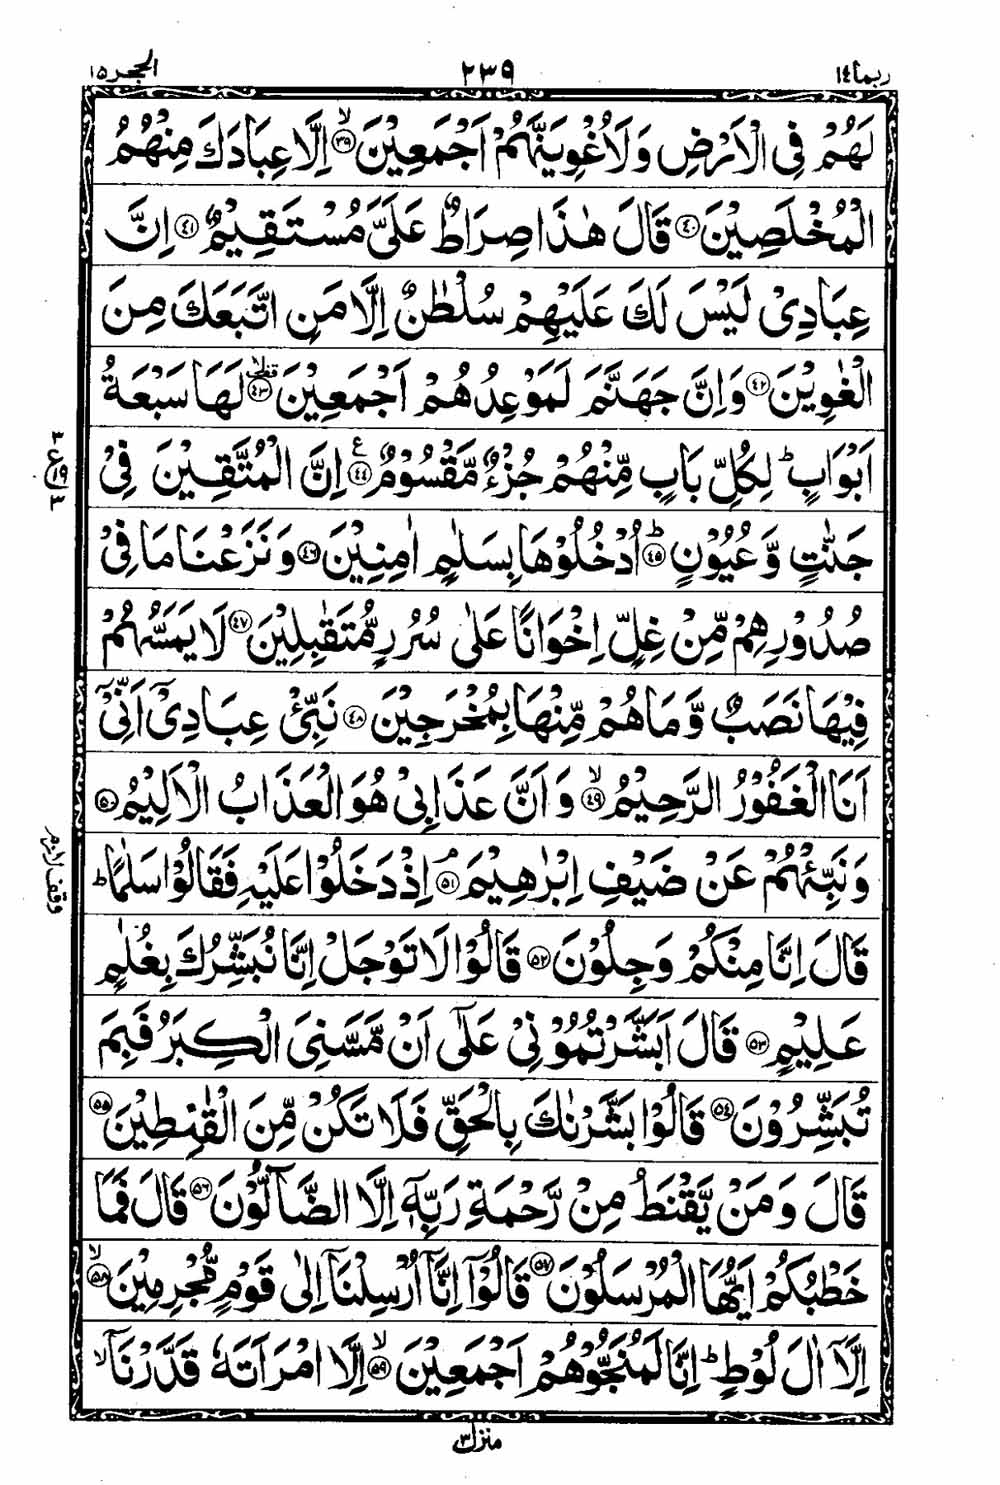 ربما١٤ ٢٣٩ الحجر ١٥
لَهُمْ فِى الْاَرْضِ وَلَاُغْوِيَنَّهُمْ اَجْمَعِيْنَ ۙ﴿۳۹﴾ اِلَّا عِبَادَكَ مِنْهُمُ
الْمُخْلَصِيْنَ ﴿۴۰﴾ قَالَ هٰذَا صِرَاطٌ عَلَىَّ مُسْتَقِيْمٌ ﴿۴۱﴾ اِنَّ
عِبَادِىْ لَيْسَ لَكَ عَلَيْهِمْ سُلْطٰنٌ اِلَّا مَنِ اتَّبَعَكَ مِنَ
الْغٰوِيْنَ ﴿۴۲﴾ وَاِنَّ جَهَنَّمَ لَمَوْعِدُهُمْ اَجْمَعِيْنَ ۟ۙ﴿۴۳﴾ لَهَا سَبْعَةُ
اَبْوَابٍ ؕ لِكُلِّ بَابٍ مِّنْهُمْ جُزْءٌ مَّقْسُوْمٌ ﴿۴۴﴾ ع اِنَّ الْمُتَّقِيْنَ فِىْ
جَنّٰتٍ وَّعُيُوْنٍ ؕ﴿۴۵﴾ اُدْخُلُوْهَا بِسَلٰمٍ اٰمِنِيْنَ ﴿۴۶﴾ وَنَزَعْنَا مَا فِىْ
صُدُوْرِهِمْ مِّنْ غِلٍّ اِخْوَانًا عَلٰى سُرُرٍ مُّتَقٰبِلِيْنَ ﴿۴۷﴾ لَا يَمَسُّهُمْ
فِيْهَا نَصَبٌ وَّمَا هُمْ مِّنْهَا بِمُخْرَجِيْنَ ﴿۴۸﴾ نَبِّئْ عِبَادِىْۤ اَنِّىْۤ
اَنَا الْغَفُوْرُ الرَّحِيْمُ ۙ﴿۴۹﴾ وَاَنَّ عَذَابِىْ هُوَ الْعَذَابُ الْاَلِيْمُ ﴿۵۰﴾
وَنَبِّئْهُمْ عَنْ ضَيْفِ اِبْرٰهِيْمَ ۘ﴿۵۱﴾ اِذْ دَخَلُوْا عَلَيْهِ فَقَالُوْا سَلٰمًا ؕ
قَالَ اِنَّا مِنْكُمْ وَجِلُوْنَ ﴿۵۲﴾ قَالُوْا لَا تَوْجَلْ اِنَّا نُبَشِّرُكَ بِغُلٰمٍ
عَلِيْمٍ ﴿۵۳﴾ قَالَ اَبَشَّرْتُمُوْنِىْ عَلٰٓى اَنْ مَّسَّنِىَ الْكِبَرُ فَبِمَ
تُبَشِّرُوْنَ ﴿۵۴﴾ قَالُوْا بَشَّرْنٰكَ بِالْحَقِّ فَلَا تَكُنْ مِّنَ الْقٰنِطِيْنَ ﴿۵۵﴾
قَالَ وَمَنْ يَّقْنَطُ مِنْ رَّحْمَةِ رَبِّهٖۤ اِلَّا الضَّآلُّوْنَ ﴿۵۶﴾ قَالَ فَمَا
خَطْبُكُمْ اَيُّهَا الْمُرْسَلُوْنَ ﴿۵۷﴾ قَالُوْۤا اِنَّاۤ اُرْسِلْنَاۤ اِلٰى قَوْمٍ مُّجْرِمِيْنَ ۙ﴿۵۸﴾
اِلَّاۤ اٰلَ لُوْطٍ ؕ اِنَّا لَمُنَجُّوْهُمْ اَجْمَعِيْنَ ۙ﴿۵۹﴾ اِلَّا امْرَاَتَهٗ قَدَّرْنَاۤ ۙ
منزل ٣
٣ ع ١٩ ٣
وقف لازم